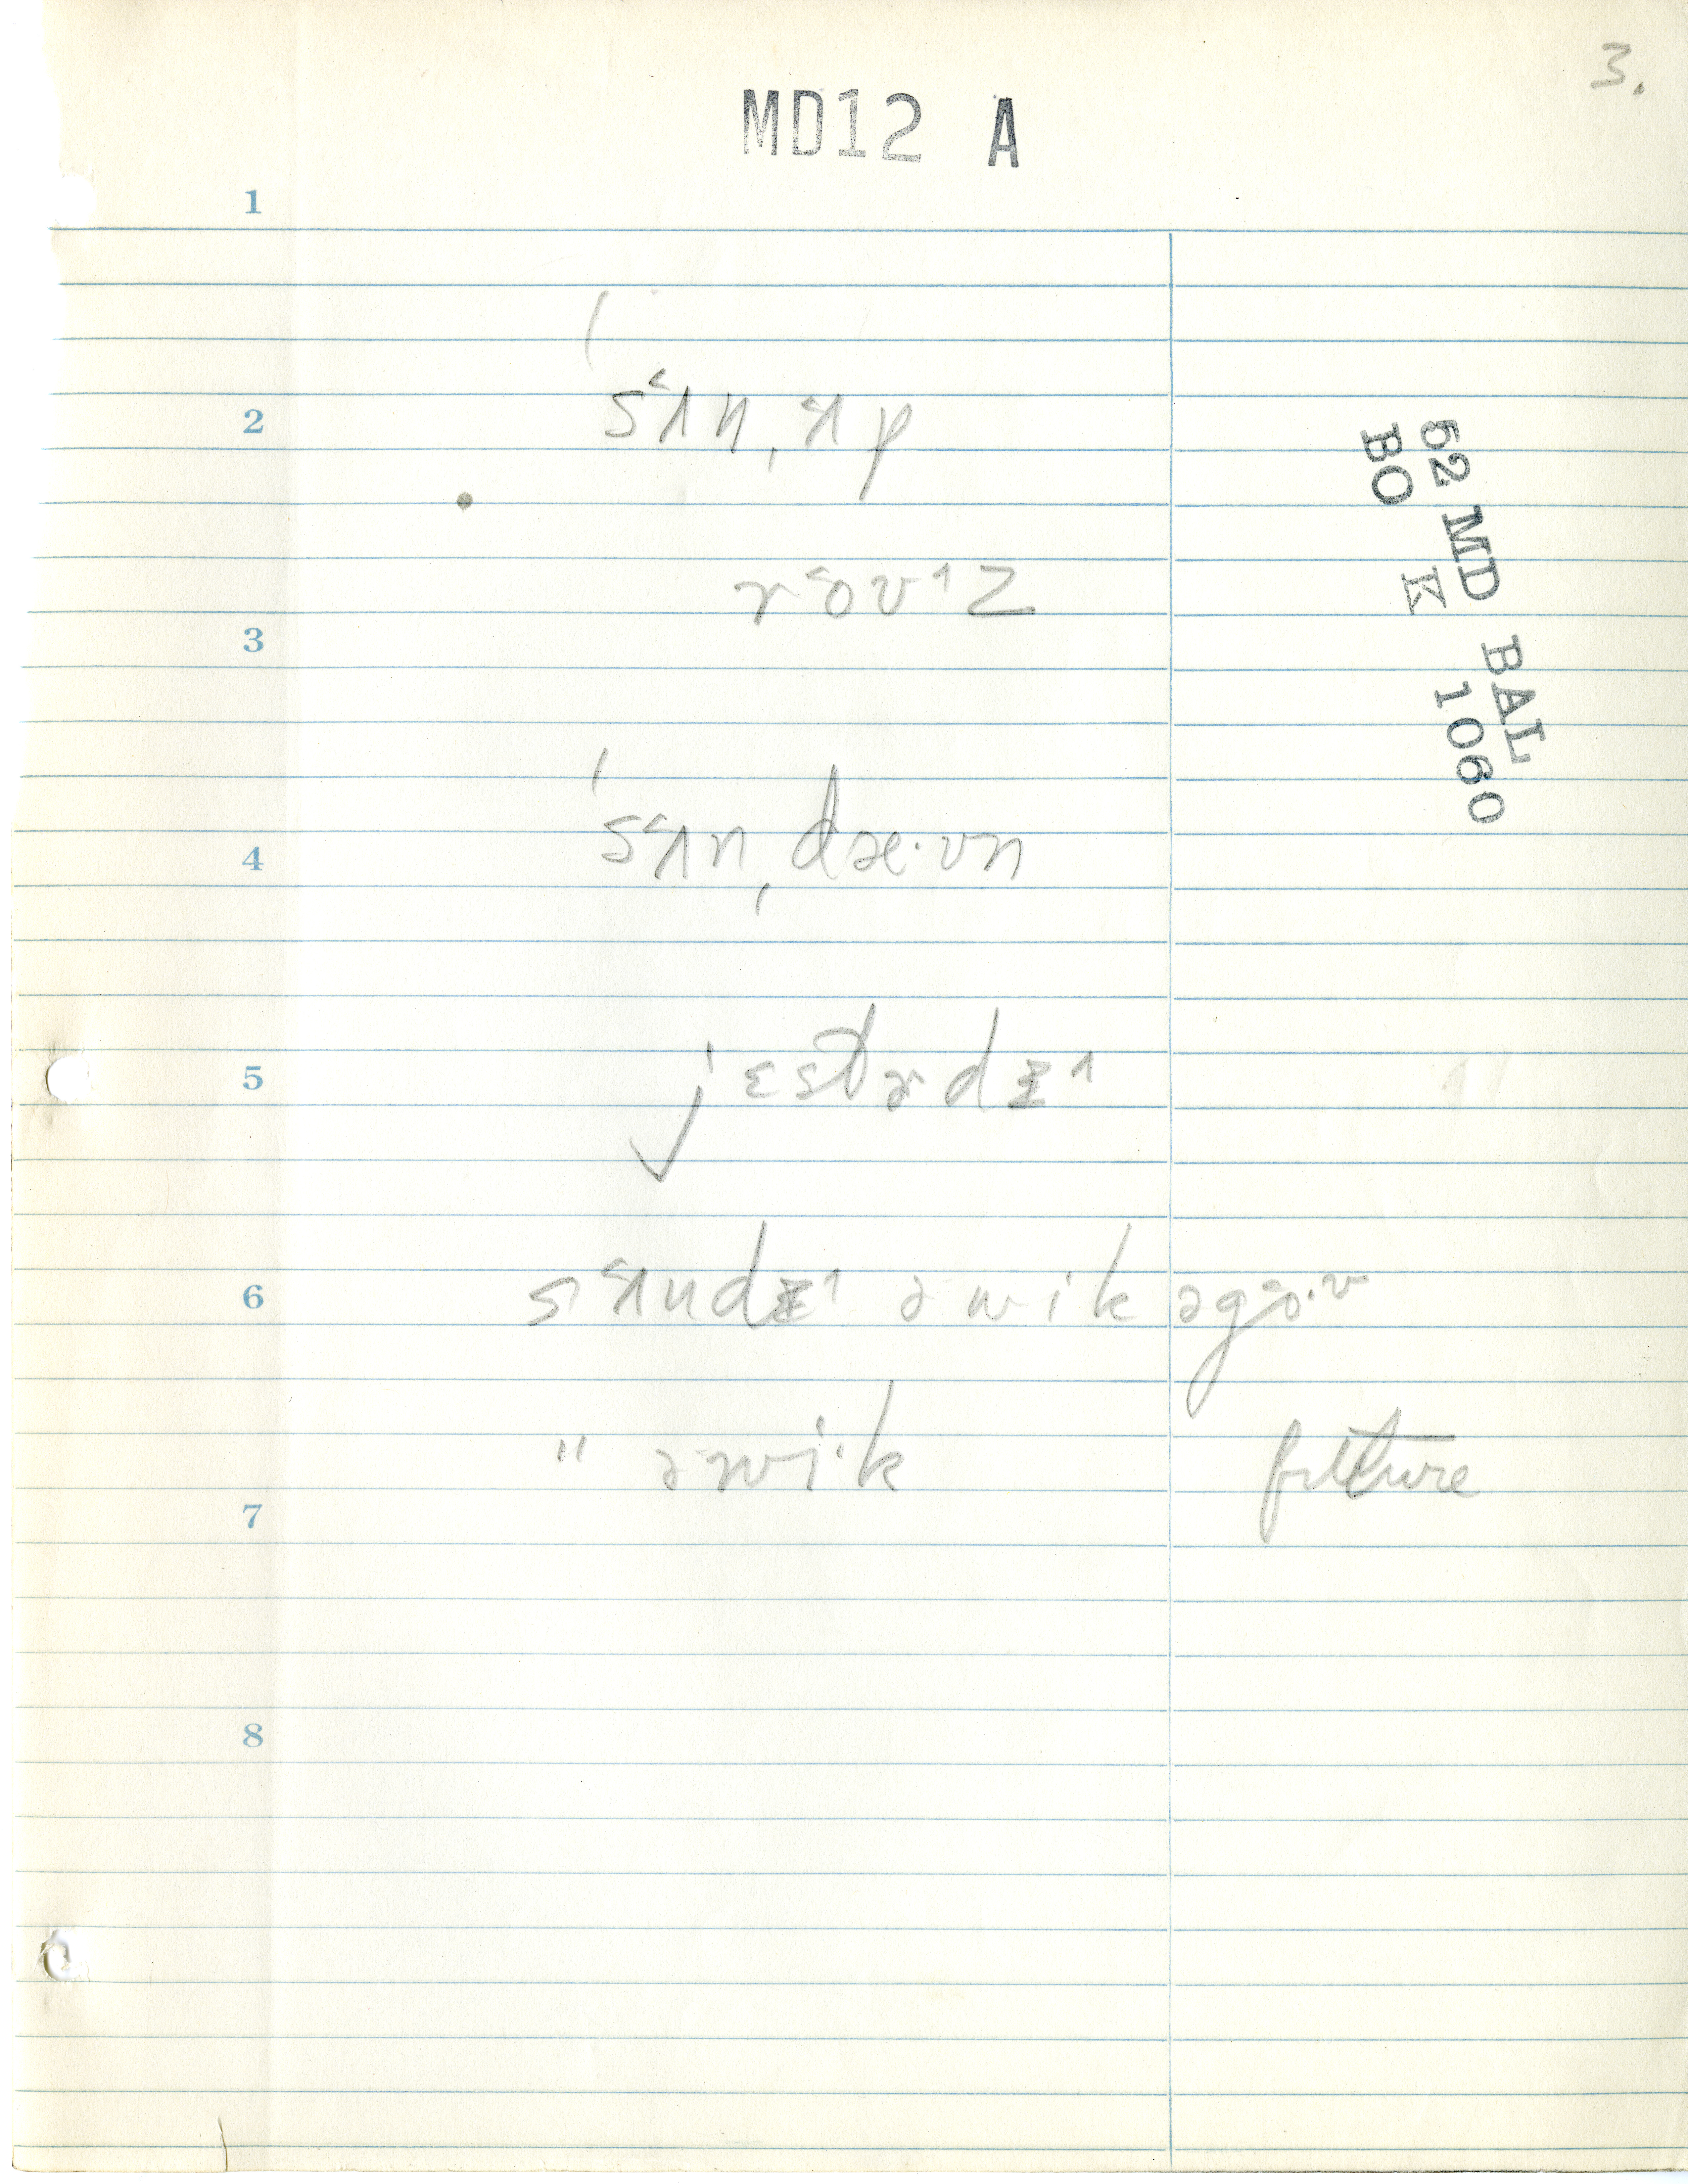 3.
MD12 A
1
ˈsʌ˂nˌʌ˂p
2
ro˂vɪz
3
ˈsʌ˂nˌdæ·ʊn
4
jɛstɚdɪ^
5
sʌ˂ndɪ^ ə wik əgɜ·ʊ
6
" ə wi·k future
7
8
52 MD BAL
BO K 1060